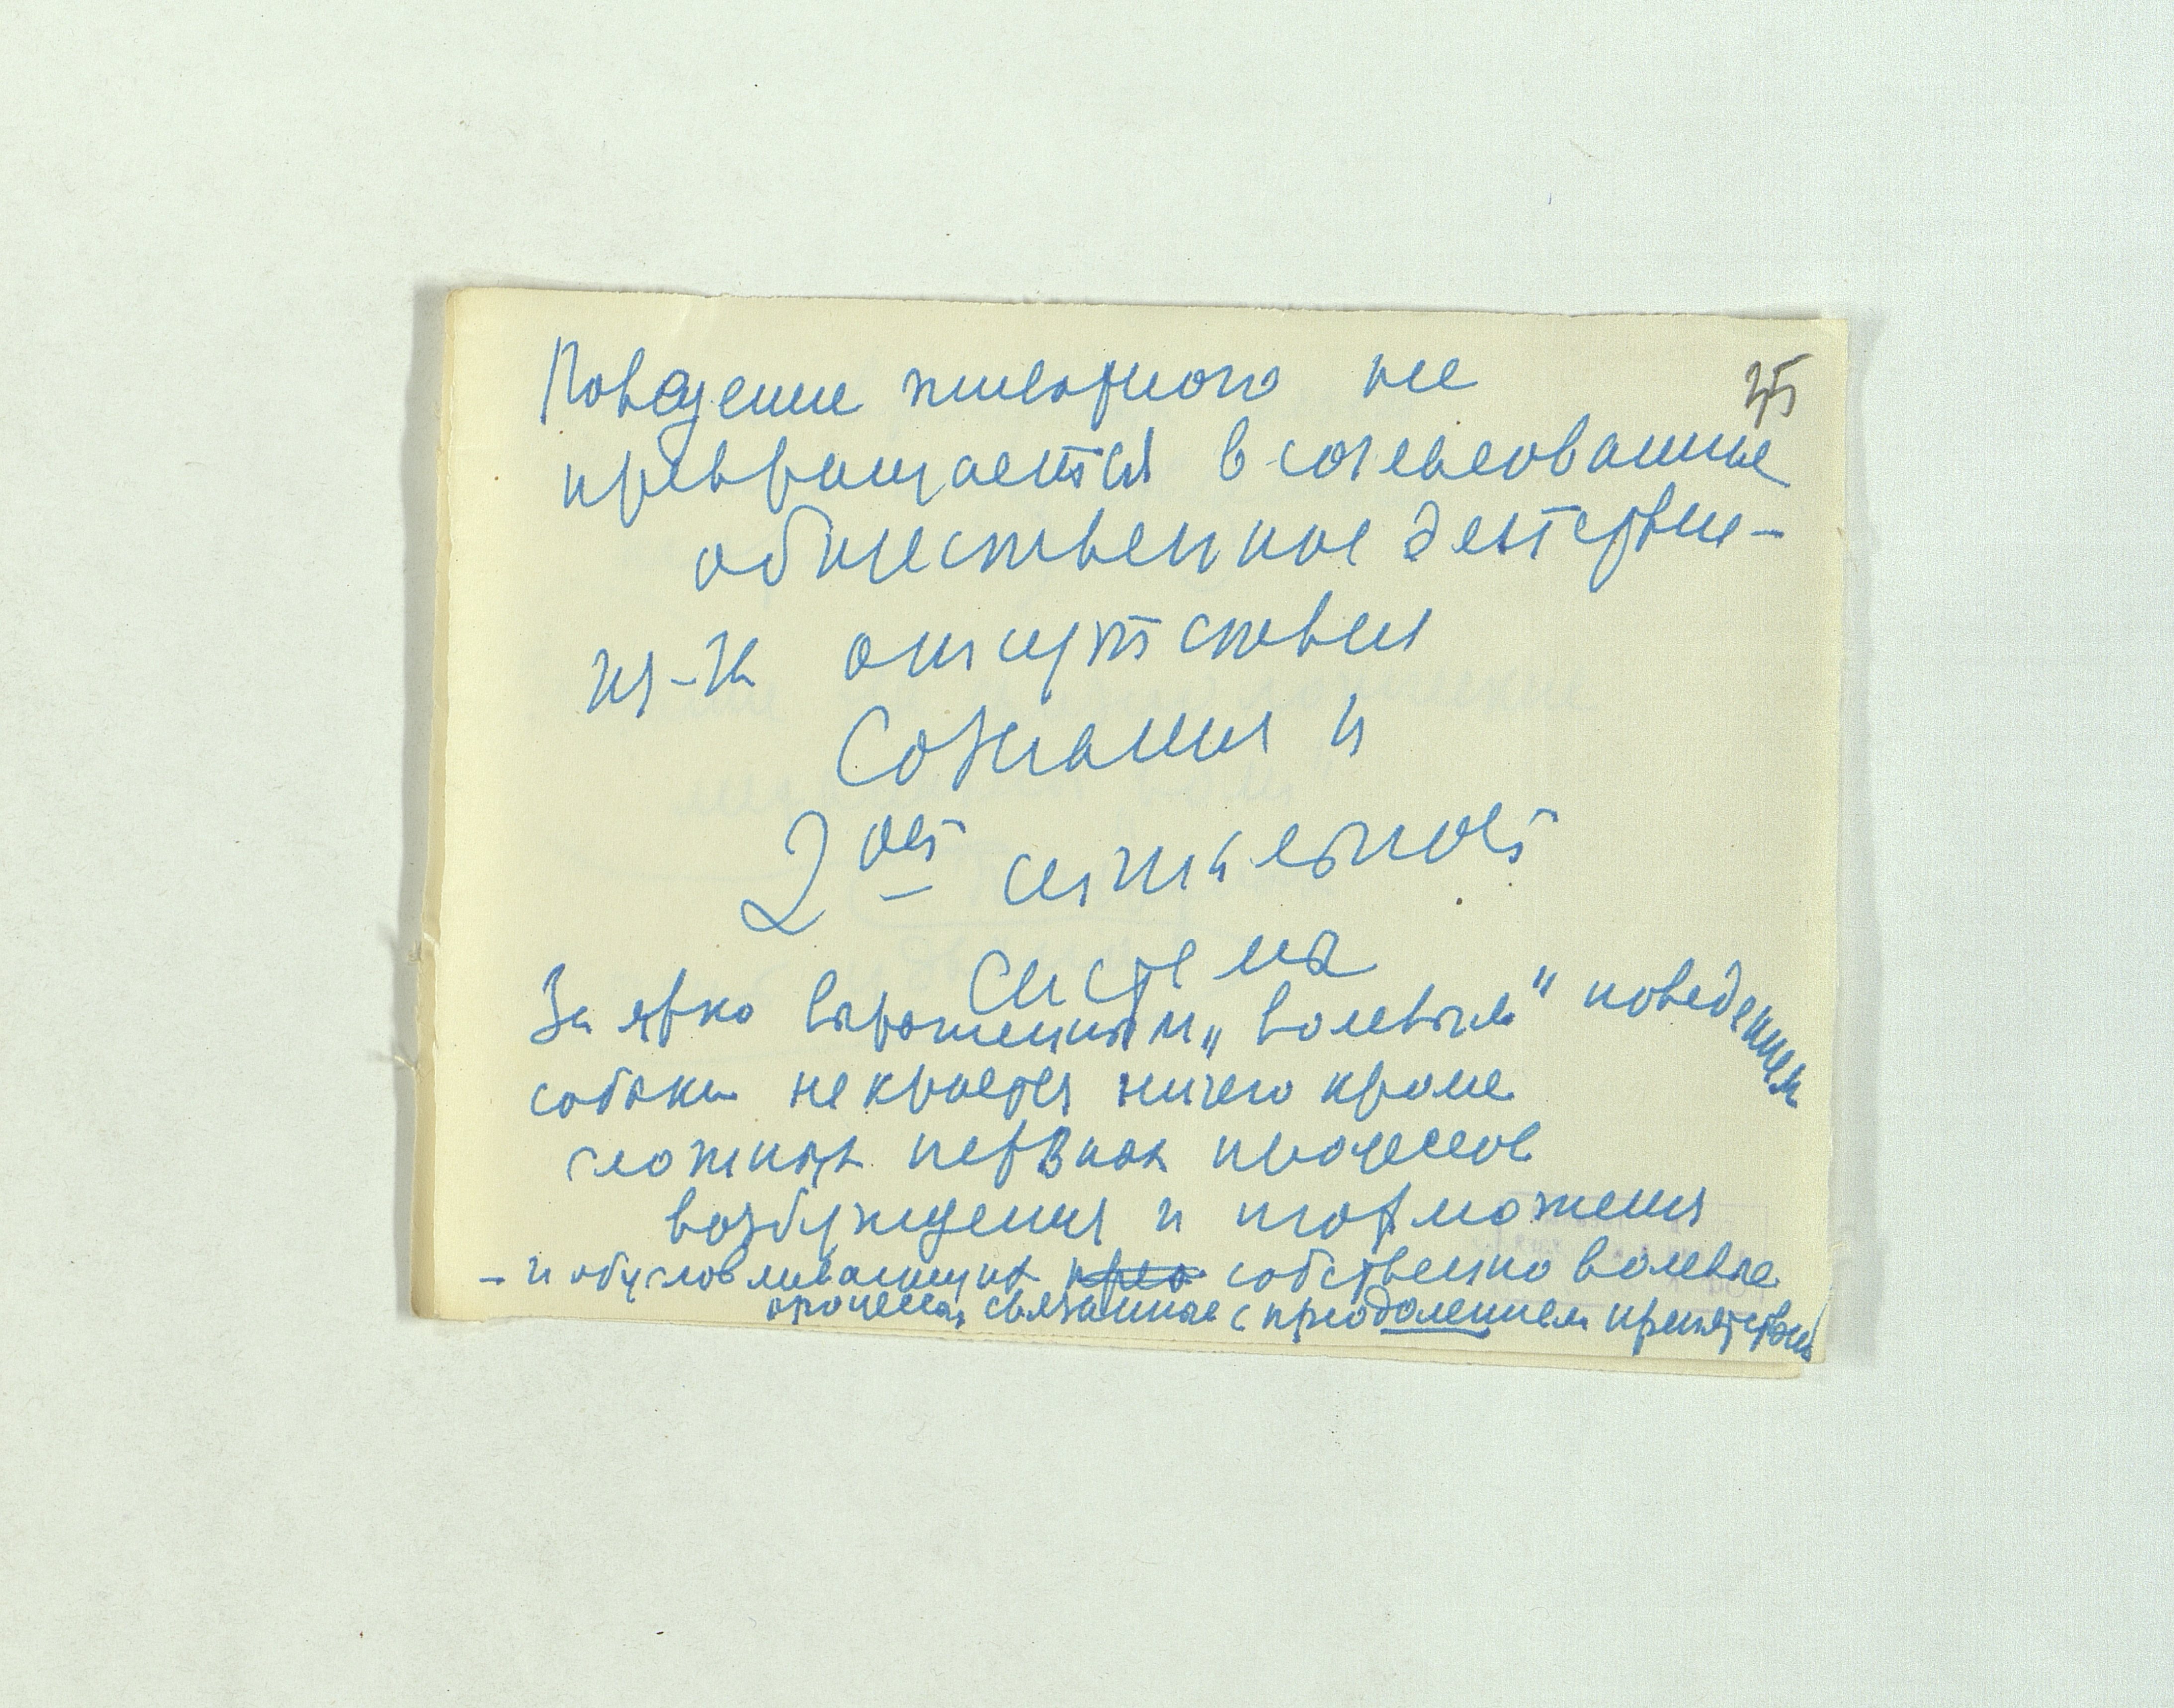 Поведение животного не
25
превращается в согласованные
общественное действие –
из-за отсутствия
сознания и
2ой сигнальной
системы
За ярко выраженным „волевым“ поведением
собаки не кроется ничего кроме
сложных нервных процессов
возбуждения и торможения
– и обусловливающих прео собственно волевые
процессы, связанные с преодолением препятствий